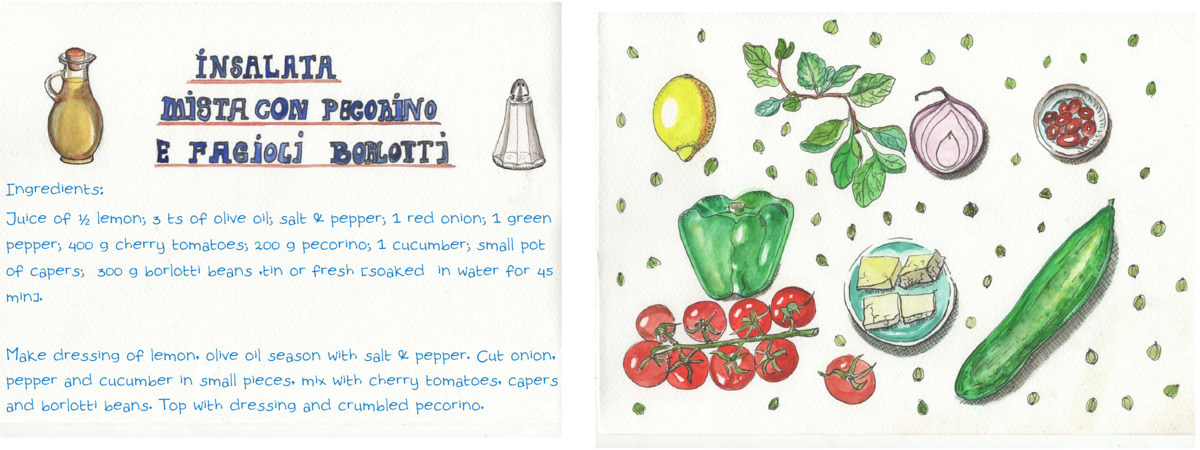 INSALATA
MISTA CON PECORINO
E FAGIOLI BORLOTTI
Ingredients:
Juice of ½ lemon; 3 ts of olive oil; salt & pepper; 1 red onion; 1 green
pepper; 400 g cherry tomatoes; 200 g pecorino; 1 cucumber; small pot
of capers; 300 g borlotti beans .tin or fresh [soaked in water for 45
min].
Make dressing of lemon. olive oil season with salt & pepper. Cut onion.
pepper and cucumber in small pieces. mix with cherry tomatoes. capers
and borlotti beans. Top with dressing and crumbled pecorino.